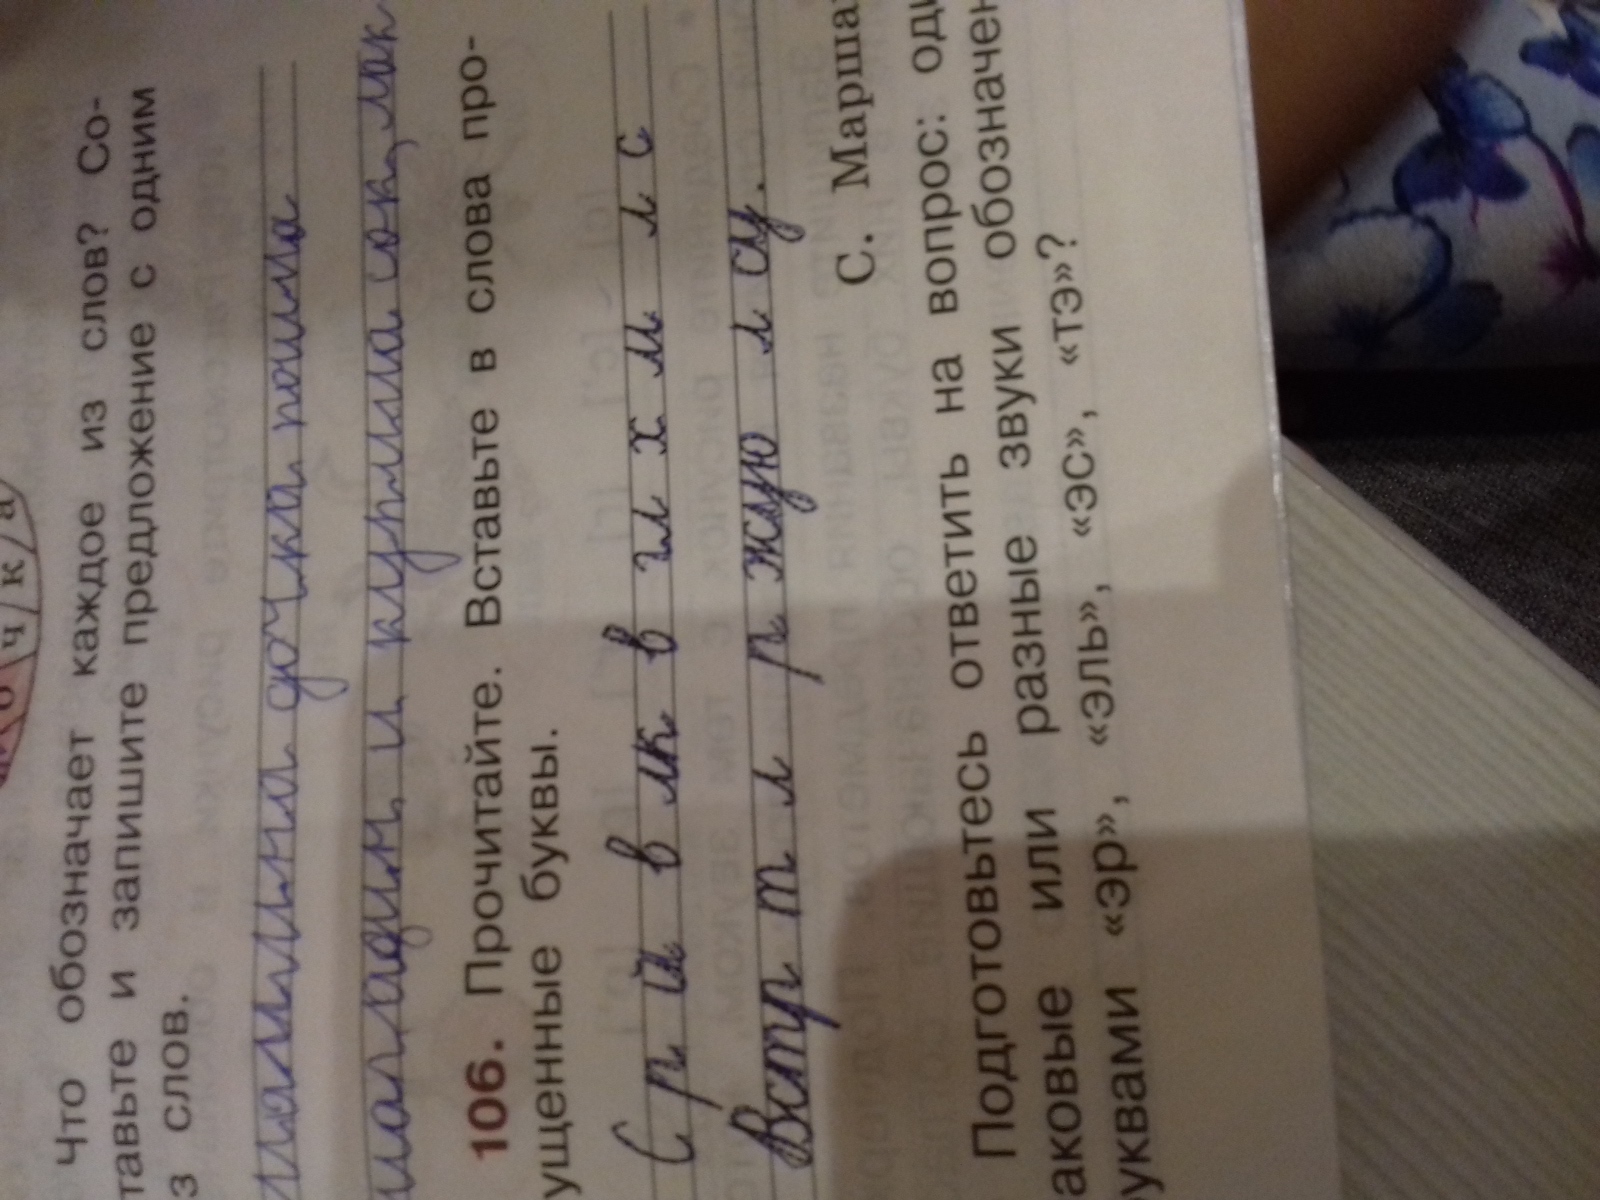 о ч/к/а
Что обозначает каждое из слов? Со-
тавьте и запишите предложение с одним
з слов.
дочка пошла
магазин и купила сок, мак
106. Прочитайте. Вставьте в слова про-
ущенные буквы.
С р й в лк в ш х м л с
Встр т л р жую л су.
С. Марша
Подготовьтесь ответить на вопрос: оди
аковые или разные звуки обозначен
уквами «эр», «эль», «эс», «тэ»?